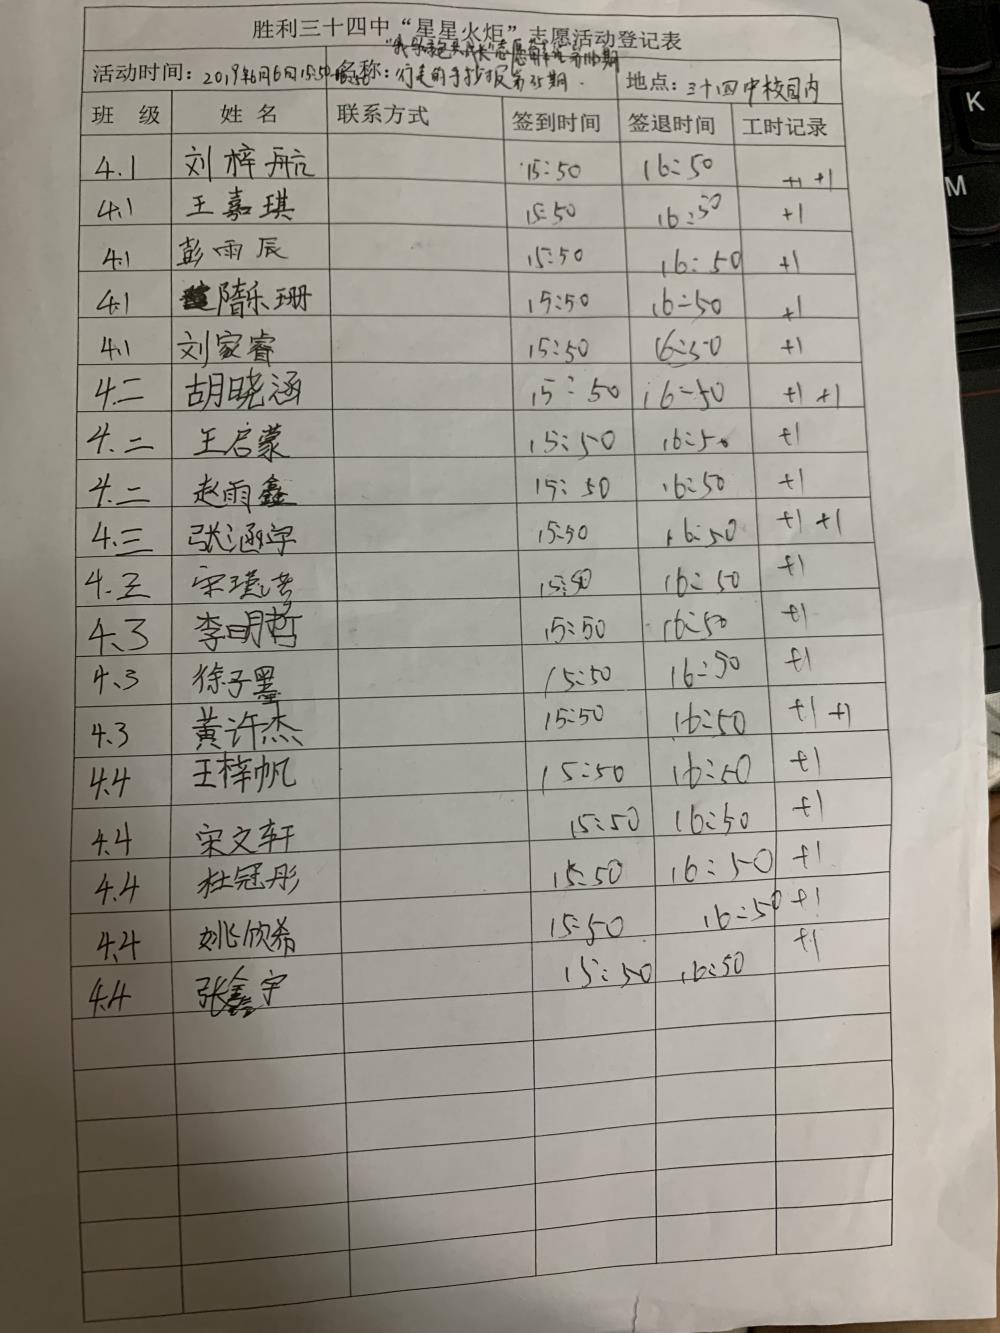 胜利三十四中“星星火炬”志愿活动登记表
活动时间：2019年6月6日15:50 名称：行走的手抄报第35期. 地点：三十四中校园内
班 级 姓 名 联系方式 签到时间 签退时间 工时记录
4.1 刘梓航 15:50 16:50 +1 +1
4.1 王嘉琪 15:50 16:50 +1
4.1 彭雨辰 15:50 16:50 +1
4.1 隋乐珊 15:50 16:50 +1
4.1 刘家睿 15:50 16:50 +1
4.二 胡晓涵 15:50 16:50 +1 +1
4.二 王启蒙 15:50 16:50 +1
4.二 赵雨鑫 15:50 16:50 +1
4.三 张涵宇 15:50 16:50 +1 +1
4.三 宋 15:50 16:50 +1
4.3 李明哲 15:50 16:50 +1
4.3 徐子墨 15:50 16:50 +1
4.3 黄许杰 15:50 16:50 +1 +1
4.4 王梓帆 15:50 16:50 +1
4.4 宋文轩 15:50 16:50 +1
4.4 杜冠彤 15:50 16:50 +1
4.4 姚欣希 15:50 16:50 +1
4.4 张鑫宇 15:50 16:50 +1
K
M